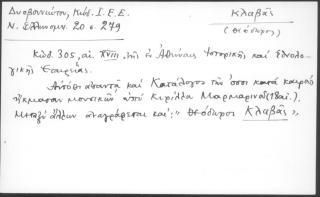 Δυοβουνιώτου, Κώδ. Ι.Ε.Ε.
Ν. Ἑλληνομν. 20 σ. 279
Κλαβᾶς
(Θεόδωρος)
Κώδ. 305, αἰ. XVIII, τῆς ἐν Ἀθήναις Ἱστορικῆς καὶ Ἐθνολο-
γικῆς Ἑταιρίας.
Αὐτόθι ἀπαντᾷ καὶ Κατάλογος τῶν ὅσοι κατὰ καιρὸν
ἤκμασαν μουσικῶν ἀπὸ Κυρίλλου Μαρμαρινοῦ (18αἰ.).
Μεταξὺ ἄλλων ἀναγράφεται καί: "Θεόδωρος Κλαβᾶς",